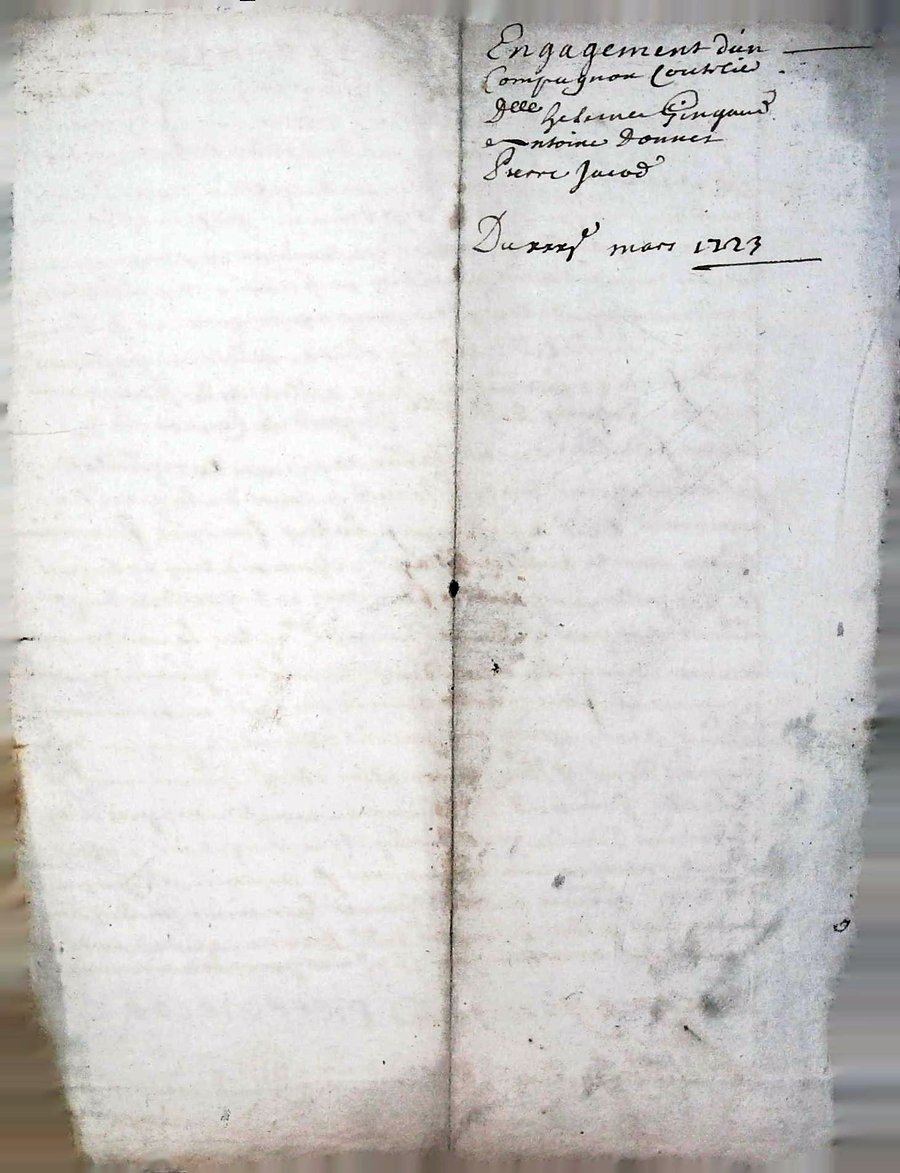 Engagement d'un
Compagnon Coutelie
Delle helene Gingaud
Antoine Donnet
Pierre Jacod
Du mars 1723